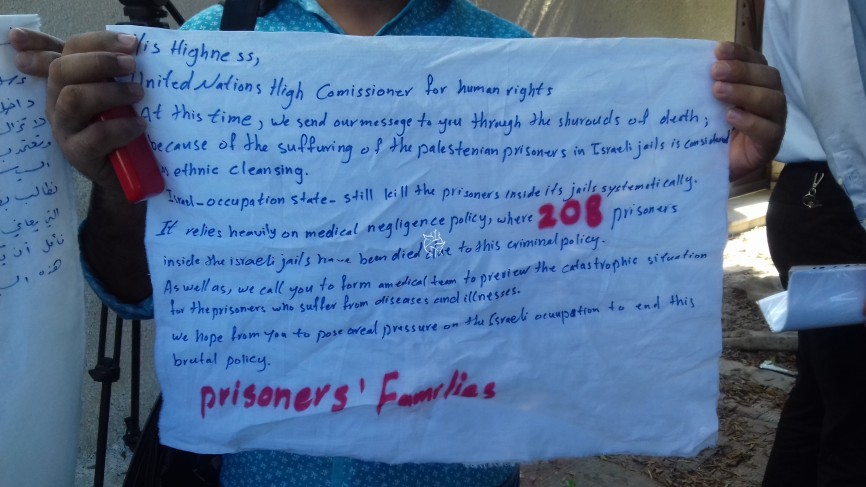 His Highness,
United Nations High Comissioner for human rights
At this time, we send our message to you through the shurouds of death;
because of the suffuring of the palestenian prisoners in Israeli jails is considered
ethnic cleansing.
Israel-occupation state- still kill the prisoners inside its jails systematically.
It relies heavily on medical negligence policy, where 208 prisoners
inside the israeli jails have been died due to this criminal policy.
As well as, we call you to form a medical team to preview the catastrophic situation
for the prisoners who suffer from diseases and illnesses.
we hope from you to pose areal pressure on the Israeli ocuupation to end this
brutal policy.
prisoners' Families
داخل
لا تزال
نطالب
التي
نأمل أن
هذه